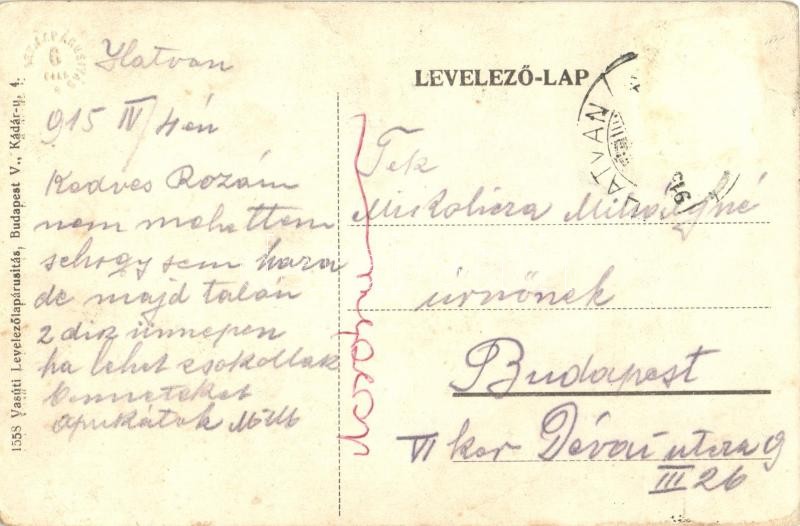 Hatvan
915 IV/4én
Kedves Rozám
nem mehettem
sehogy sem haza
de majd talán
2dik ünnepen
ha lehet csokollak
Benneteket
Apukátok
LEVELEZŐ-LAP
Tek
Mikolicza Mihályné
úrnőnek
Budapest
VI ker Dévai utcza 9
III 26
ATVAN
915
1558 Vasúti Levelezőlapárusitás, Budapest V., Kádár-u. 4.